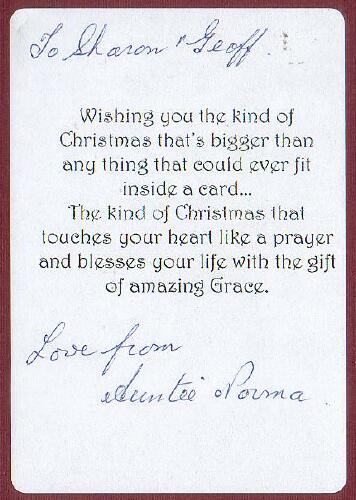 To Sharon " Geoff.
Wishing you the kind of
Christmas that's bigger than
any thing that could ever fit
inside a card...
The kind of Christmas that
touches your heart like a prayer
and blesses your life with the gift
of amazing Grace.
Love from
Auntie Norma.